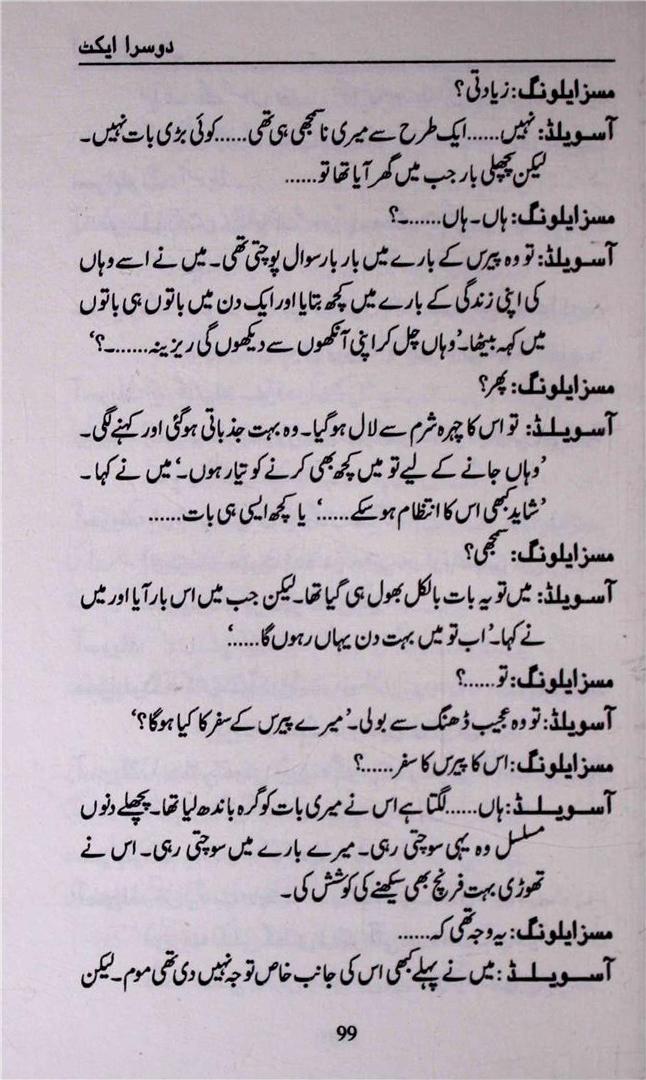 دوسرا ایکٹ
مسز ایلونگ: زیادتی؟
آسویلڈ: نہیں......ایک طرح سے میری ناسمجھی ہی تھی......کوئی بڑی بات نہیں۔
لیکن پچھلی بار جب میں گھر آیا تھا تو......
مسز ایلونگ: ہاں۔ ہاں......۔؟
آسویلڈ: تو وہ پیرس کے بارے میں بار بار سوال پوچتی تھی۔ میں نے اسے وہاں
کی اپنی زندگی کے بارے میں کچھ بتایا اور ایک دن میں باتوں ہی باتوں
میں کہہ بیٹھا۔ ’وہاں چل کر اپنی آنکھوں سے دیکھوں گی ریزینہ......۔؟‘
مسز ایلونگ: پھر؟
آسویلڈ: تو اس کا چہرہ شرم سے لال ہوگیا۔ وہ بہت جذباتی ہوگئی اور کہنے لگی۔
’وہاں جانے کے لیے تو میں کچھ بھی کرنے کو تیار ہوں۔‘ میں نے کہا۔
’شاید کبھی اس کا انتظام ہوسکے.....‘ یا کچھ ایسی ہی بات......
مسز ایلونگ: سمجھی؟
آسویلڈ: میں تو یہ بات بالکل بھول ہی گیا تھا۔ لیکن جب میں اس بار آیا اور میں
نے کہا۔ ’اب تو میں بہت دن یہاں رہوں گا......‘
مسز ایلونگ: تو......؟
آسویلڈ: تو وہ عجیب ڈھنگ سے بولی۔ ’میرے پیرس کے سفر کا کیا ہوگا؟‘
مسز ایلونگ: اس کا پیرس کا سفر.....؟
آسویلڈ: ہاں......لگتا ہے اس نے میری بات کو گرہ باندھ لیا تھا۔ پچھلے دنوں
مسلسل وہ یہی سوچتی رہی۔ میرے بارے میں سوچتی رہی۔ اس نے
تھوڑی بہت فرنچ بھی سیکھنے کی کوشش کی۔
مسز ایلونگ: یہ وجہ تھی کہ......
آسویلڈ: میں نے پہلے کبھی اس کی جانب خاص توجہ نہیں دی تھی موم۔ لیکن
99